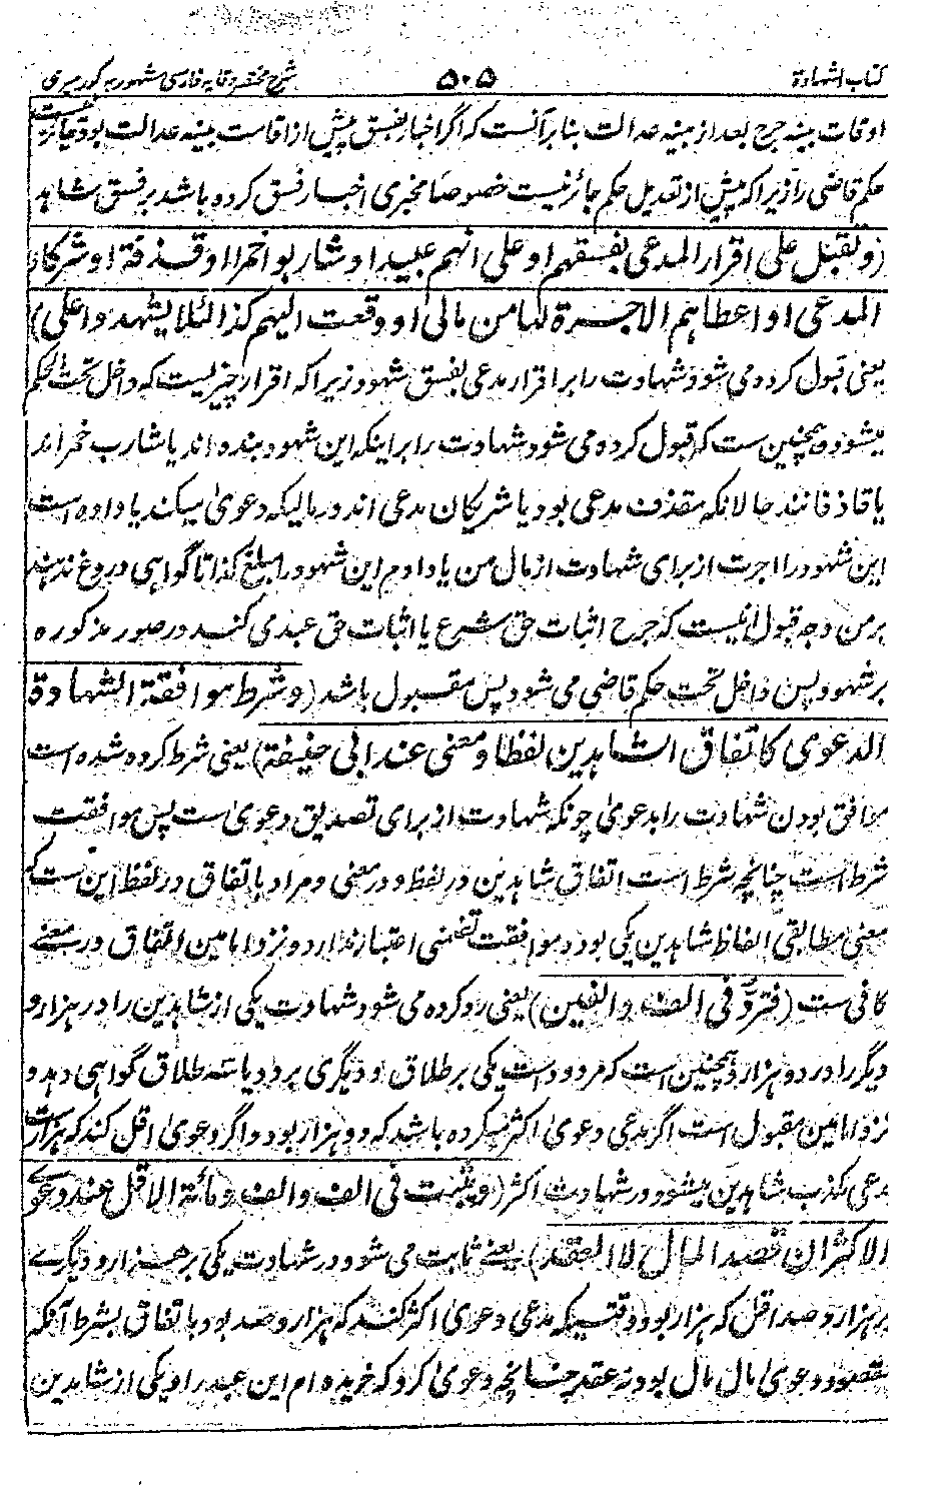 کتاب الشهادة ۵۰۵ شرح مختصر وقایه فارسی مشهور به کور میری
اوقات بینه جرح بعد از بینه عدالت بنا بر آنست که اگر اخبار بفسق پیش از اقامت بینه عدالت بود جائز نیست
حکم قاضی را زیرا که پیش از تعدیل حکم جائز نیست خصوصا مخبری اخبار فسق کرده باشد بر فسق شاهد
(و تقبل علی اقرار المدعی بفسقهم او علی انهم عبید او شاربوا خمرا او قذفة او شرکاء
المدعی او اعطاهم الاجرة لها من مالی او وقعت الیهم کذا لئلا یشهدوا علی)
یعنی قبول کرده می شود شهادت را بر اقرار مدعی بفسق شهود زیرا که اقرار چیزیست که داخل تحت الحکم
میشود و همچنین ست که قبول کرده می شود شهادت را بر اینکه این شهود بنده اند یا شارب خمر اند
یا قاذفانند حالانکه مقذوف مدعی بود یا شریکان مدعی اند در مالیکه دعویٰ میکند یا داده است
این شهود را اجرت از برای شهادت از مال من یا دادم این شهود را مبلغ کذا تا گواهی دروغ ندهند
بر من وجه قبول اینست که جرح اثبات حق شرع یا اثبات حق عبد می کند در صور مذکوره
بر شهود پس داخل تحت حکم قاضی می شود پس مقبول باشد (و شرط موافقة الشهادة
الدعوی کاتفاق الشاهدین لفظا و معنی عند ابی حنیفة) یعنی شرط کرده شده است
موافق بودن شهادت را بدعویٰ چونکه شهادت از برای تصدیق دعویٰ ست پس موافقت
شرط است چنانچه شرط است اتفاق شاهدین در لفظ و در معنی و مراد باتفاق در لفظ این ست که
معنی مطابقی الفاظ شاهدین یکی بود و موافقت تضمنی اعتبار ندارد و نزد امامین اتفاق در معنے
کافی ست (فترد فی الف و الفین) یعنی رد کرده می شود شهادت یکی از شاهدین را در هزار و
دیگر را در دو هزار و همچنین است که مردود است یکی بر طلاق و دیگری بر دو یا سه طلاق گواهی دهد و
نزد امامین مقبول است اگر مدعی دعویٰ اکثر میکرده باشد که دو هزار بود و اگر دعویٰ اقل کند که هزار است
مدعی مکذب شاهدین میشود در شهادت اکثر (و یثبت فی الف و الف و مائة الاقل عند دعوے
الاکثر ان قصد المال لا العقد) یعنے ثابت می شود در شهادت یکی بر هزار و دیگرے
بر هزار و صد اقل که هزار بود وقتیکه مدعی دعویٰ اکثر کند که هزار و صد بود باتفاق بشرط آنکه
مقصود دعویٰ مال بود نه عقد چنانچه دعویٰ کرد که خریده ام این عبد را و یکی از شاهدین